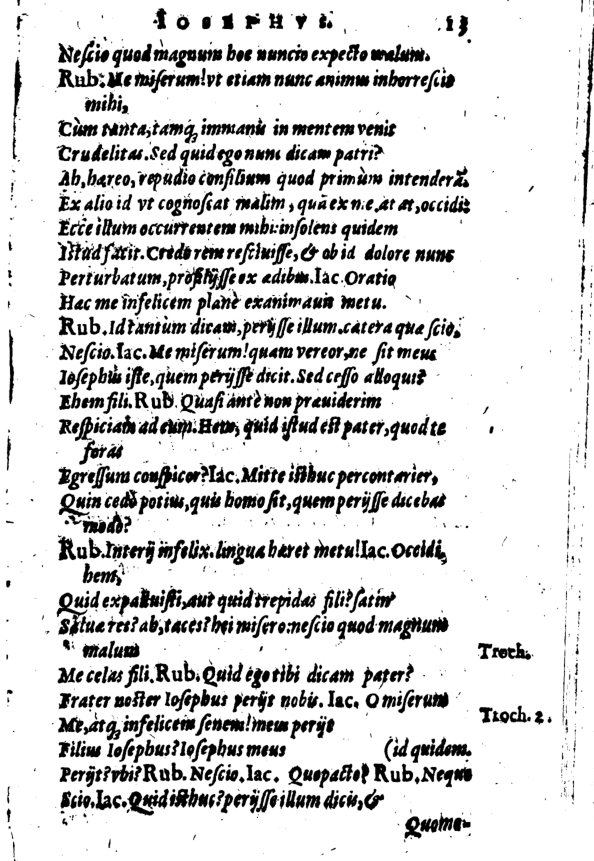 IOSEPHVS. 13
Nescio quod magnum hoc nuncio expecto malum.
Rub. Me miserum! vt etiam nunc animus inhorrescit
mihi,
Cùm tanta, tamq; immanis in mentem venit
Crudelitas. Sed quid ego nunc dicam patri?
Ah, hæreo, repudio consilium quod primùm intenderā.
Ex alio id vt cognoscat malim, quā ex me. at at, occidi:
Ecce illum occurrentem mihi: insolens quidem
Istud facit. Credo rem resciuisse, & ob id dolore nunc
Perturbatum, prosilijsse ex ædibus. Iac. Oratio
Hac me infelicem planè exanimauit metu.
Rub. Id tantùm dicam, perijsse illum. cætera quæ scio,
Nescio. Iac. Me miserum! quam vereor, ne sit meus
Iosephus iste, quem perijsse dicit. Sed cesso alloqui?
Ehem fili. Rub. Quasi antè non præuiderim
Respiciam ad eum. Hem, quid istud est pater, quod te
foras
Egressum conspicor? Iac. Mitte isthuc percontarier,
Quin cedò potius, quis homo sit, quem perijsse dicebas
modò?
Rub. Interij infelix. lingua hæret metu! Iac. Occidi,
hem,
Quid expalluisti, aut quid trepidas fili? satin'
Saluæ res? ah, taces? hei misero: nescio quod magnum
malum Troch.
Me celas fili. Rub. Quid ego tibi dicam pater?
Frater noster Iosephus perijt nobis. Iac. O miserum
Me, atq; infelicem senem! meus perijt Troch. 2.
Filius Iosephus? Iosephus meus (id quidem.
Perijt? vbi? Rub. Nescio. Iac. Quo pacto? Rub. Neque
Scio. Iac. Quid isthuc? perijsse illum dicis, &
Quomo-